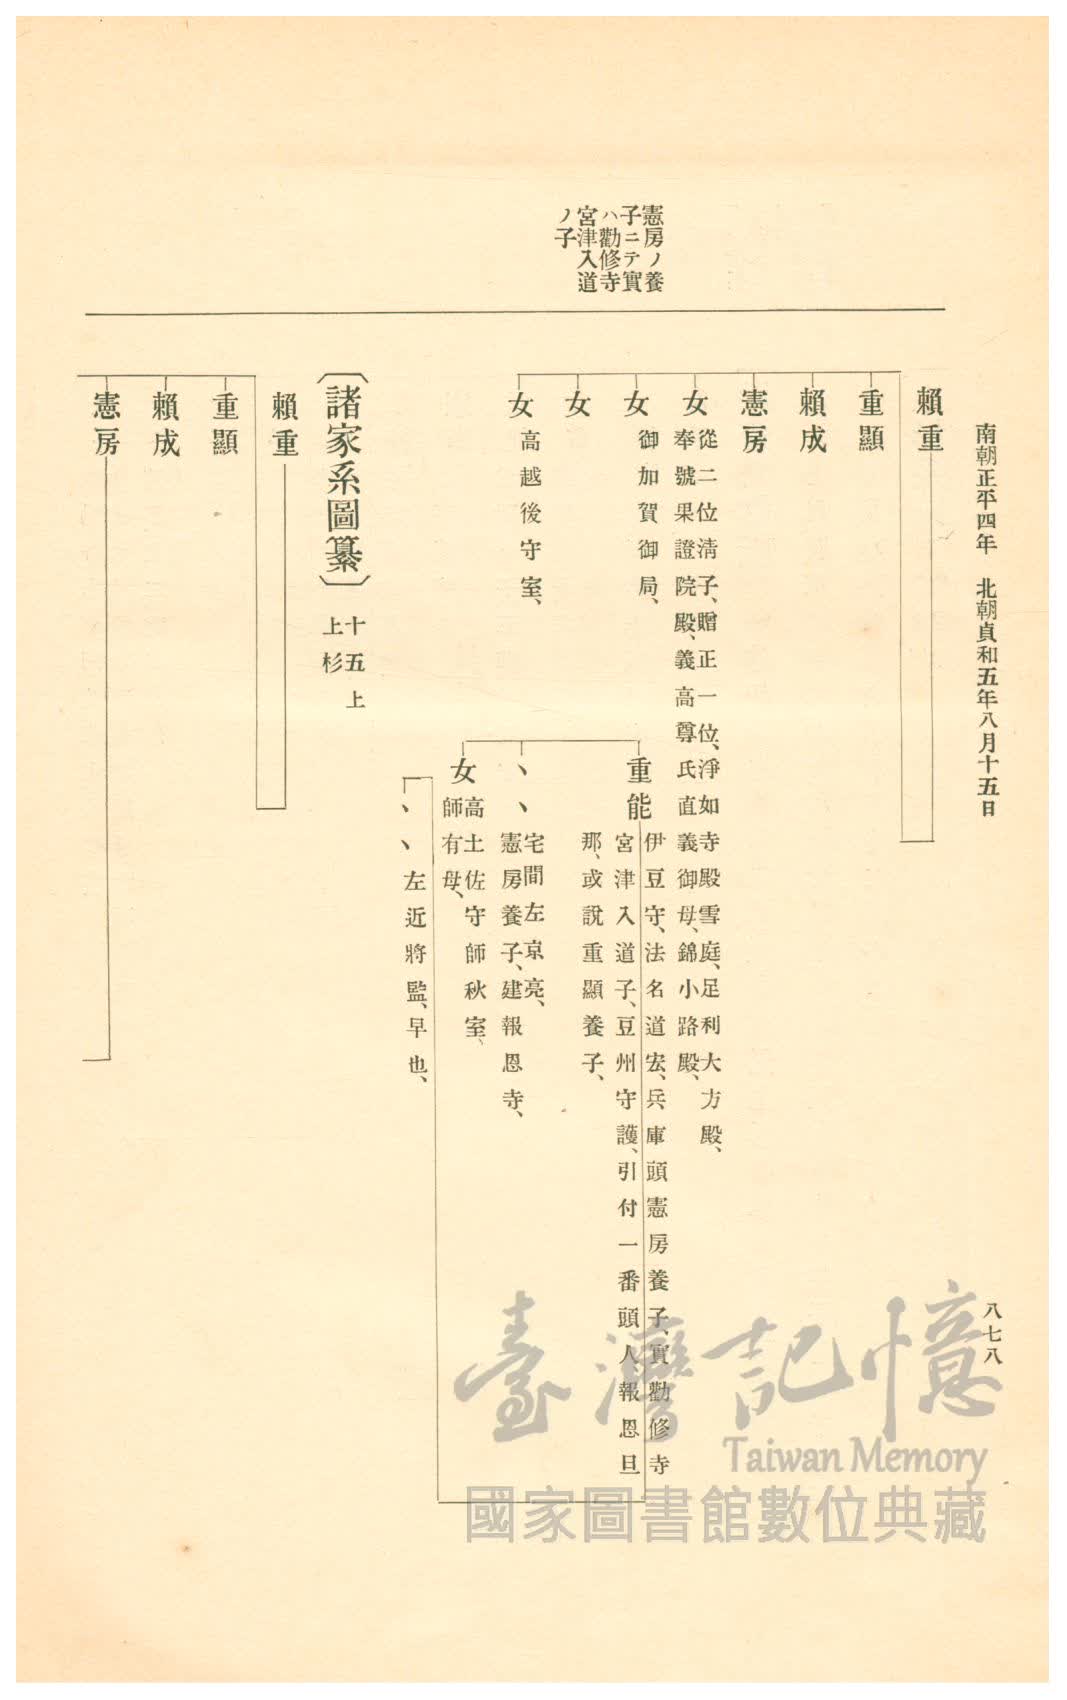 南朝正平四年　北朝貞和五年八月十五日
八七八
憲房ノ養
子ニテ實
ハ勸修寺
宮津入道
ノ子
賴重
重顯
賴成
憲房
女
從二位淸子、贈正一位、淨如寺殿雪庭、足利大方殿、
奉號果證院殿、義高尊氏直義御母、錦小路殿、
女
御加賀御局、
女
女
高越後守室、
重能
伊豆守、法名道宏、兵庫頭憲房養子、實勸修寺
宮津入道子、豆州守護、引付一番頭人報恩旦
那、或說重顯養子、
、、
宅間左京亮、
憲房養子、建報恩寺、
女
高土佐守師秋室、
師有母、
、、左近將監、早也、
〔諸家系圖纂〕
十五上
上杉
賴重
重顯
賴成
憲房
臺灣記憶
Taiwan Memory
國家圖書館數位典藏